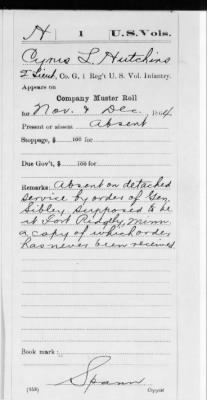 H 1 U.S.Vols.
Cyrus L. Hutchins
2 Lieut, Co. G, 1 Reg't U. S. Vol. Infantry.
Appears on
Company Muster Roll
for Nov. & Dec., 1864.
Present or absent Absent
Stoppage, $ 100 for
Due Gov't, $ 100 for
Remarks: Absent on detached
service by order of Gen.
Sibley supposed to be
at Fort Ridgely, Minn.
a copy of which order
has never been received
Book mark:
Spann
(358) Copyist.